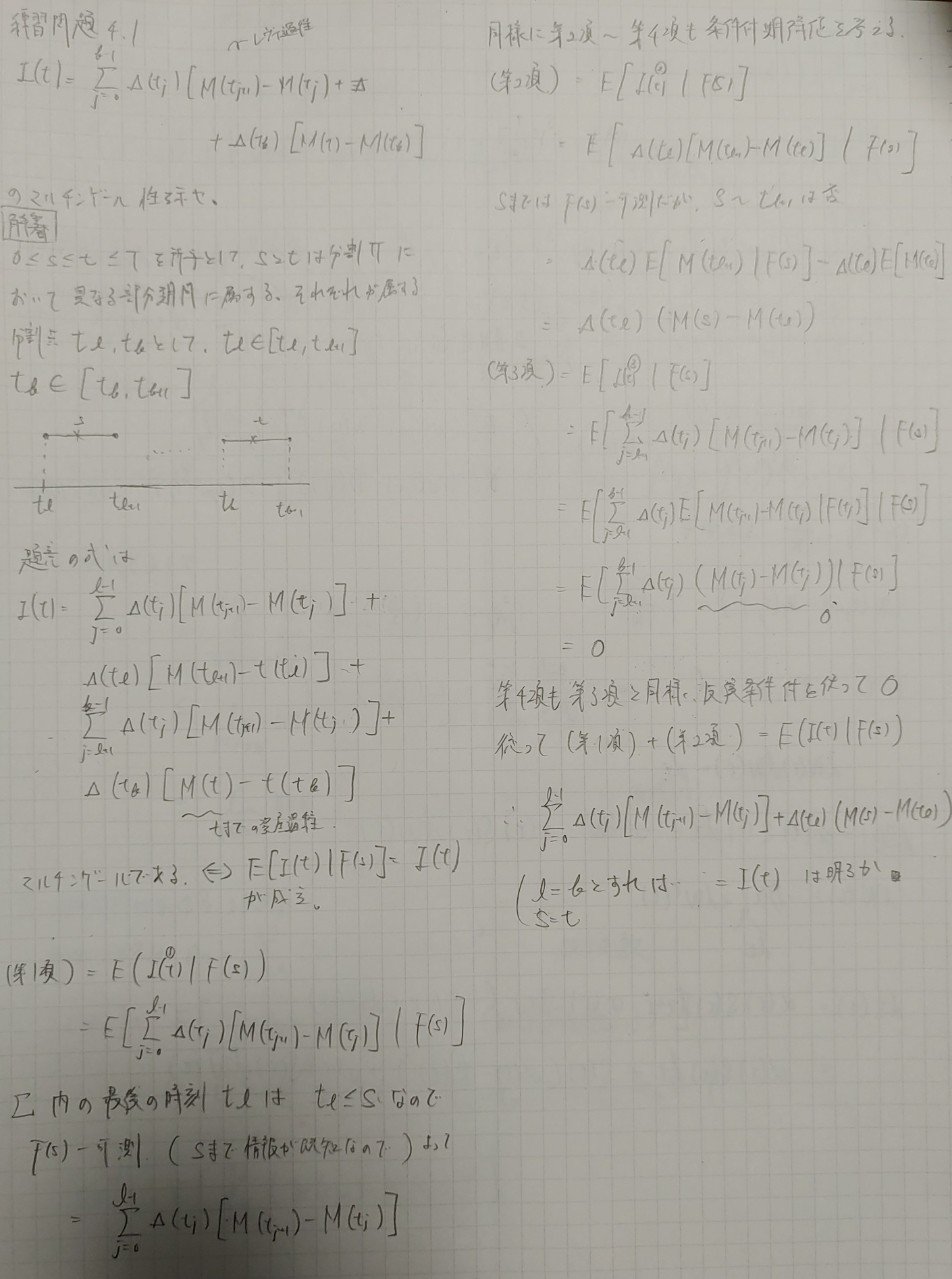 練習問題 4.1
I(t) = Σ_{j=0}^{k-1} Δ(tj) [M(tj+1) - M(tj) +
+ Δ(tk) [M(t) - M(tk)]
のマルチンゲール性を示せ。
解答
0 ≤ s ≤ t ≤ T を所与として、sとtは分割Πに
おいて異なる部分期間に属する、それぞれが属する
分割点 tl, tkとして、tl ∈ [tl, tl+1]
tk ∈ [tk, tk+1]
s t
tl tl+1 ...... tk tk+1
題意の式は
I(t) = Σ_{j=0}^{l-1} Δ(tj) [M(tj+1) - M(tj)] +
Δ(tl) [M(tl+1) - t(tl)] +
Σ_{j=l+1}^{k-1} Δ(tj) [M(tj+1) - M(tj)] +
Δ(tk) [M(t) - t(tk)]
tまでの
マルチンゲールである。 ⇔ E[I(t) | F(s)] = I(t)
が成立。
(第1項) = E(I(t)① | F(s))
= E[Σ_{j=0}^{l-1} Δ(tj) [M(tj+1) - M(tj)] | F(s)]
Σ内の最後の時刻 tl は tl ≤ s なので
F(s)-可測 (sまで情報が既知なので) よって
= Σ_{j=0}^{l-1} Δ(tj) [M(tj+1) - M(tj)]
同様に第2項〜第4項も条件付期待値を考える.
(第2項) = E[I(t)② | F(s)]
= E[Δ(tl) [M(tl+1) - M(tl)] | F(s)]
sまでは F(s)-可測だが、s〜tl+1は否
= Δ(tl) E[M(tl+1) | F(s)] - Δ(tl) E[M(tl)]
= Δ(tl) (M(s) - M(tl))
(第3項) = E[I(t)③ | F(s)]
= E[Σ_{j=l+1}^{k-1} Δ(tj) [M(tj+1) - M(tj)] | F(s)]
= E[Σ_{j=l+1}^{k-1} Δ(tj) E[M(tj+1) - M(tj) | F(tj)] | F(s)]
= E[Σ_{j=l+1}^{k-1} Δ(tj) (M(tj) - M(tj)) | F(s)]
0
= 0
第4項も第3項と同様、反復条件付を使って 0
従って (第1項) + (第2項) = E(I(t) | F(s))
∴ Σ_{j=0}^{l-1} Δ(tj) [M(tj+1) - M(tj)] + Δ(tl) (M(s) - M(tl))
( l = k とすれば = I(t) は明らか
s = t